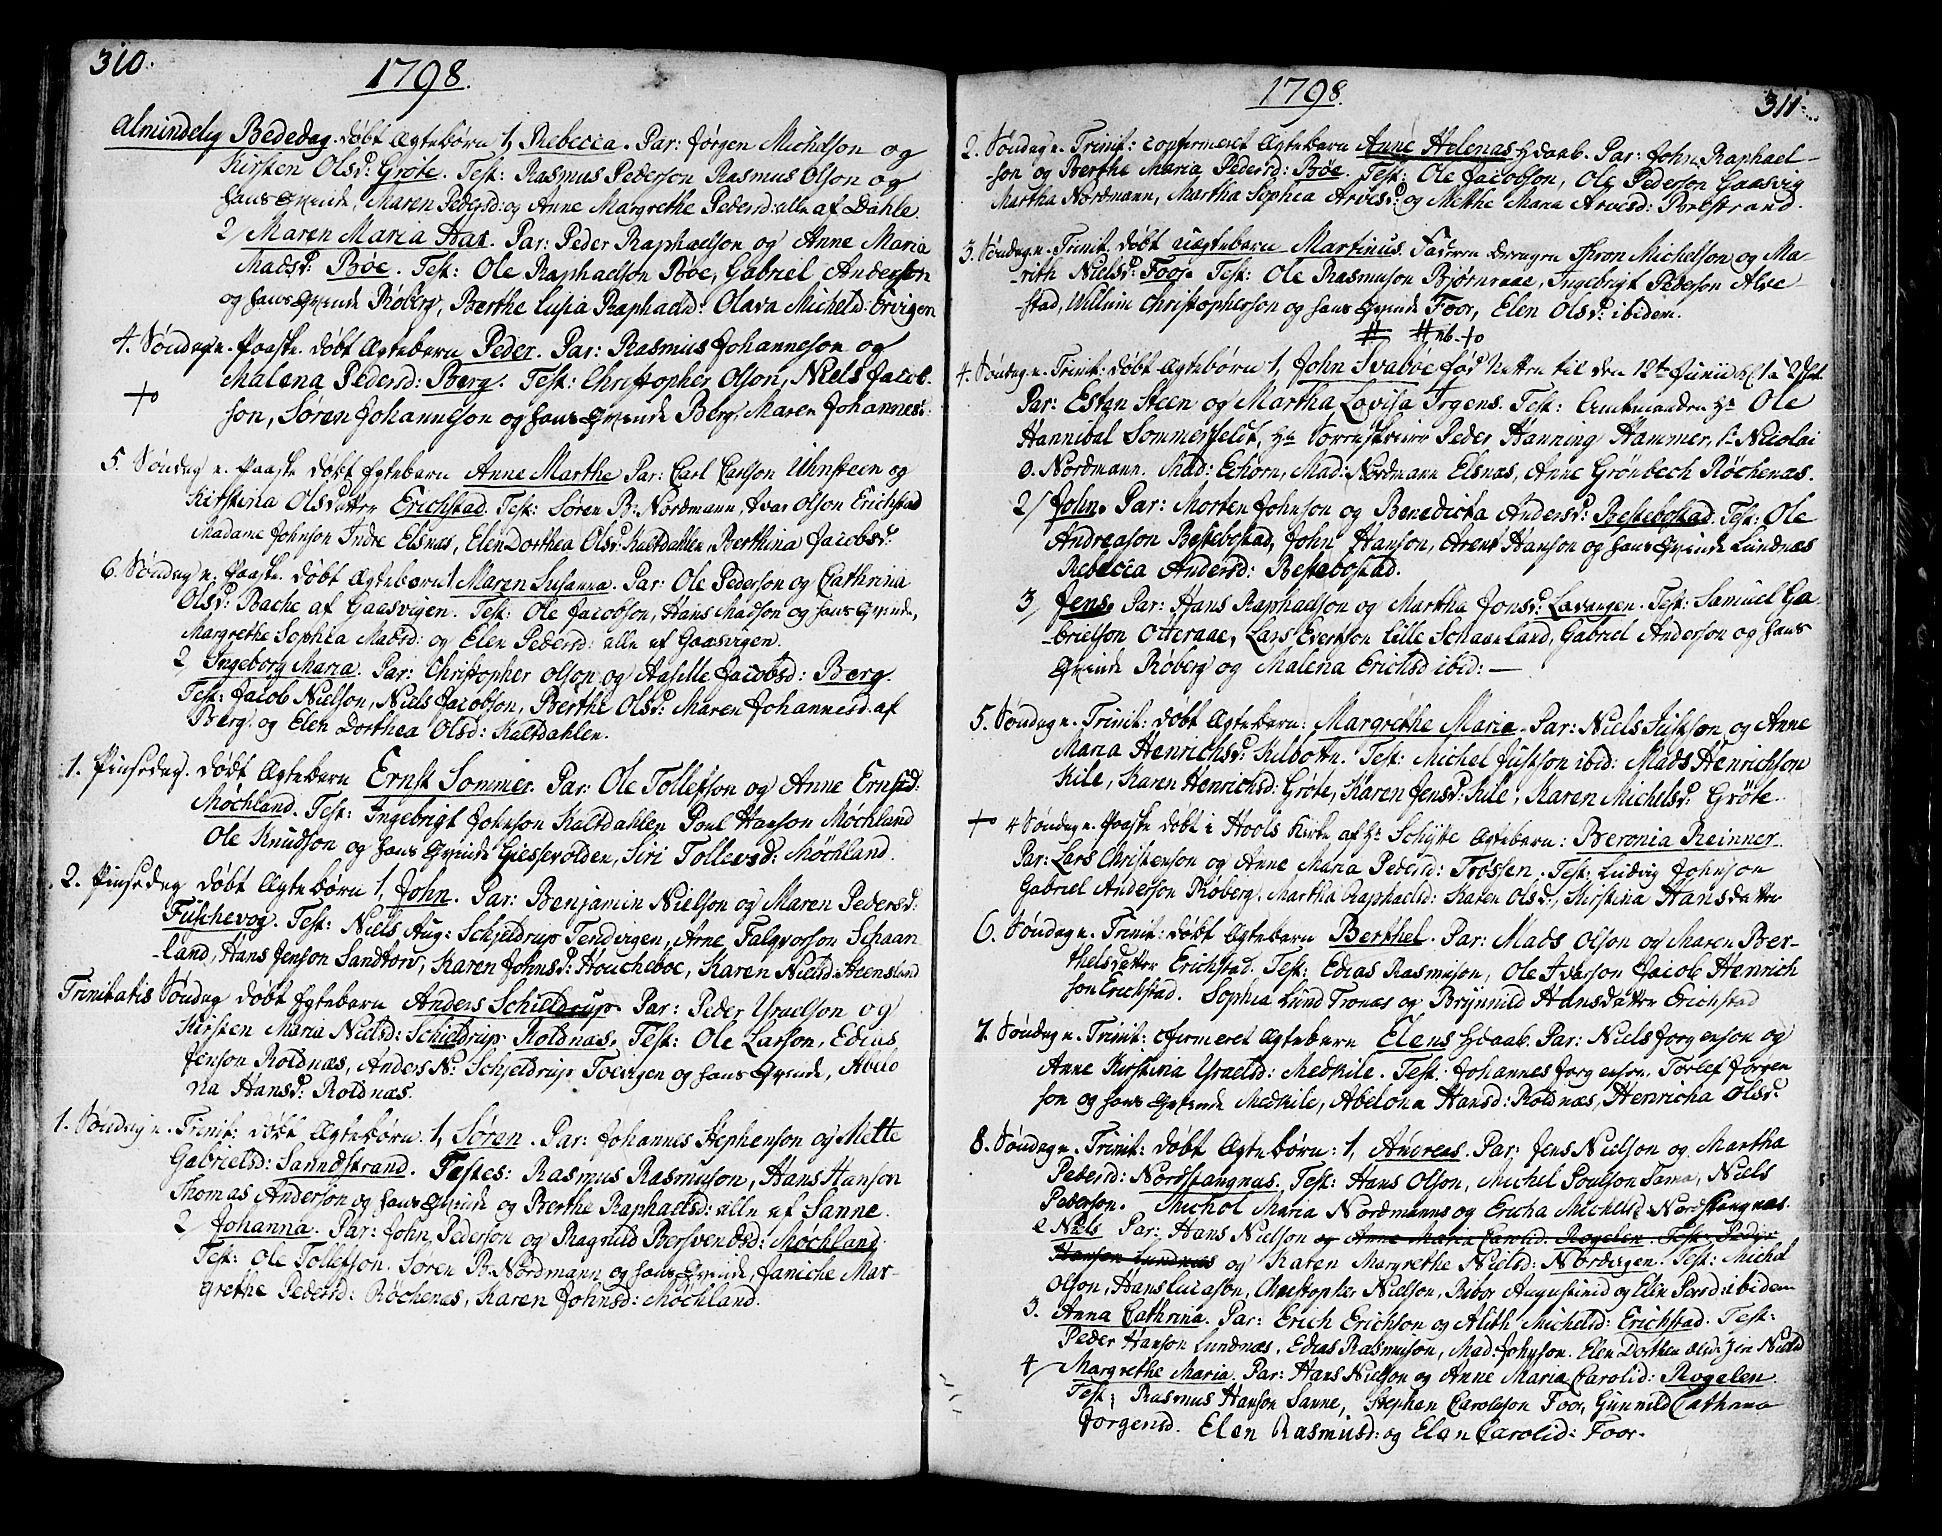 310.
1798.
Almindelig Bededag. døbt Ægtebørn 1, Rebecca. Par: Jørgen Michelson og
Kirsten Olsd: Grøte. Test: Rasmus Pederson Rasmus Olson og
hans Qvinde, Maren Pedersd: og Anne Margrethe Pedersd: alle af Dahle.
2/ Maren Maria Har. Par: Peder Raphaelson og Anne Maria
Madsd: Bøe. Test: Ole Raphaelson Bøe, Gabriel Anderson
og hans Qvinde Røberg, Berthe Lusia Raphaelsd: Olava Michelsd: Ervigen
4. Søndag n. Paaske. døbt Ægtebarn Peder. Par: Rasmus Johanneson og
Malena Pedersd: Berg. Test: Christopher Olson, Niels Jacob-
son, Søren Johanneson og hans Qvinde Berg, Maren Johannesd:
5. Søndag n. Paaske døbt Egtebarn Anne Marthe Par: Carl Carlson Uhnsteen og
Kirstina Olsdatter Erichstad. Test: Søren B: Nordmann, Avar Olson Erichstad
Madame Johnson Indre Elsnæs, Elen Dorthea Olsd: Kaltdahlen, Berthina Jacobsd:
6. Søndag n. Paaske. døbt Ægtebørn 1 Maren Susanna. Par: Ole Pederson og Cathrina
Olsd: Bache af Gaasvigen. Test: Ole Jacobson, Hans Madson og hans Qvinde,
Margrethe Sophia Madsd: og Elen Pedersd: alle af Gaasvigen.
2, Ingeborg Maria. Par: Christopher Olson og Aselle Jacobsd: Berg.
Test: Jacob Nielson, Niels Jacobson, Berthe Olsd: Maren Johannesd. af
Berg. og Elen Dorthea Olsd: Kaltdahlen.
1. Pinsedag. døbt Ægtebarn Ernst Sommer. Par: Ole Tollefson og Anne Ernstsd:
Møchland. Test: Ingebrigt Johnson Kaltdahlen Poul Hanson Møchland
Ole Knudson og hans Qvinde Giessevolden, Siri Tollevsd: Møchland.
2. Pinsedag døbt Ægtebørn 1, John. Par: Benjamin Nielson og Maren Pedersd:
Fuschevog. Test: Niels Aug: Schjeldrup Tendvigen, Arne Falqvorson Schaan-
land, Hans Jenson Sandtorv, Karen Johnsd: Houcheboe, Karen Nielsd: Steensland
Trinitatis Søndag døbt Egtebarn Anders Schieldrup. Par: Peder Ysraelson og
Kirsten Maria Nielsd: Schieldrup Roldnæs. Test: Ole Larson, Edias
Jenson Roldnæs, Anders N: Schjeldrup Tovigen og hans Qvinde, Abelo
na Hansd: Roldnæs.
1. Søndag n. Trinit: døbt Ægtebørn 1, Søren. Par: Johannis Stephenson og Mette
Gabrielsd: Sanndstrand. Testes: Rasmus Rasmuson, Hans Hanson
Thomas Anderson og hans Qvinde og Berthe Raphaelsd: alle af Sanne.
2/ Johanna. Par: John Pederson og Ragnild Bersvendsd: Møchland.
Test: Ole Tollefson. Søren B. Nordmann og hans Qvinde, Janiche Mar-
grethe Pedersd: Røchenæs, Karen Johnsd: Møchland.
1798.
311.
2. Søndag n. Trinit: confirmeret Ægtebarn Anne Helenas Hdaab. Par: John Raphael-
son og Berthe Maria Pedersd: Bøe. Test: Ole Jacobson, Ole Pederson Gaasvig
Martha Nordmann, Martha Sophia Arvesd: og Methe Maria Arvesd:
3. Søndag n. Trinit. døbt uægtebarn Martinus. Faderen Drengen Thron Michelson og Ma-
rith Nielsd: Foor. Test: Ole Rasmuson Bjørnraae, Ingebrigt Pederson Alve-
stad, Willum Christopherson og hans Qvinde Foor, Elen Olsd: ibidem.
# # nb. +
4. Søndag n. Trinit: døbt Ægtebørn 1, John Svabøe fød Natten til den 12te Junii
Par: Esten Steen og Martha Lovisa Irgens. Test: Amtmanden Hr Ole
Hannibal Sommerfeldt, Hr Peder Hanning Hammer, Nicolai
O. Nordmann. Mad: Echorn, Mad: Nordmann Elsnæs, Anne Grønbech Røchenæs.
2/ John. Par: Morten Johnson og Benedicta Andersd: Bestebostad. Test: Ole
Andreason Bestebostad, John Hanson, Arent Hanson og hans Qvinde Lundnæs
Rebecca Andersd: Bestebostad.
3/ Jens. Par: Hans Raphaelson og Martha Jonsd: Lavangen. Test: Samuel Ga-
brielson Otteraae, Lars Evertson Lille Schaanland, Gabriel Anderson og hans
Qvinde Røberg og Malena Erichsd ibid: —
5. Søndag n. Trinit: døbt Ægtebarn: Margrethe Maria. Par: Niels Justson og Anne
Maria Henrichsd: Kilbottn. Test: Michel Justson ibid: Mads Henrichson
Kile, Karen Henrichsd: Grøte, Karen Jensd: Kile, Karen Michelsd: Grøte.
+ 4 Søndag n. Paaske døbt i Hools Kirke af Hr Schytte Ægtebarn: Beronia Reinner
Par: Lars Christenson og Anne Maria Pedersd: Trossen. Test: Ludvig Johnson
Gabriel Anderson Røberg. Martha Raphaelsd: Karen Olsd:, Kirstina Hansdatter
6. Søndag n. Trinit: døbt Ægtebarn Berthel. Par: Mads Olson og Maren Ber-
thelsdatter Erichstad. Test: Edias Rasmuson, Ole Iverson Jacob Henrich
son Erichstad. Sophia Lund Tronæs og Brynnild Hansdatter Erichstad
7. Søndag n. Trinit: Cfirmeret Ægtebarn Elens Hdaab. Par: Niels Jorgenson og
Anne Kirstina Ysraelsd: Medkile. Test: Johannes Jorgenson, Torlef Jørgen
son og hans Qvinde Medkile, Abelona Hansd: Roldnæs, Henricha Olsd:
8. Søndag n. Trinit: døbt Ægtebørn: 1, Andreas. Par: Jens Nielson og Martha
Pedersd: Nordstangnæs. Test: Hans Olson, Michel Poulson Sama, Niels
Pederson. Michol Maria Nordmanns og Ericha Michelsd: Nordstangnæs.
2 Niels Par: Hans Nielson og Anne Maria Carolid: Rogelen. Test: Peder
Hanson Lundnæs og Karen Margrethe Nielsd: Nordvigen. Test: Michel
Olson, Hans Lucason, Christopher Nielson, Ribor Augustinsd og Elen Persd: ibidem
3. Anna Cathrina. Par: Erich Erichson og Alith Michelsd: Erichstad. Test:
Peder Hanson Lundnæs, Edias Rasmuson, Mad: Johnson. Elen Dorthea Olsd: Nielsd
4/ Margrethe Maria. Par: Hans Nielson og Anne Maria Carolid: Rogelen.
Test; Rasmus Hanson Sanne, Stephen Carolison Foor, Gunnild Cathrina
Jorgensd. Elen Rasmusd: og Elen Carolid: Foor.